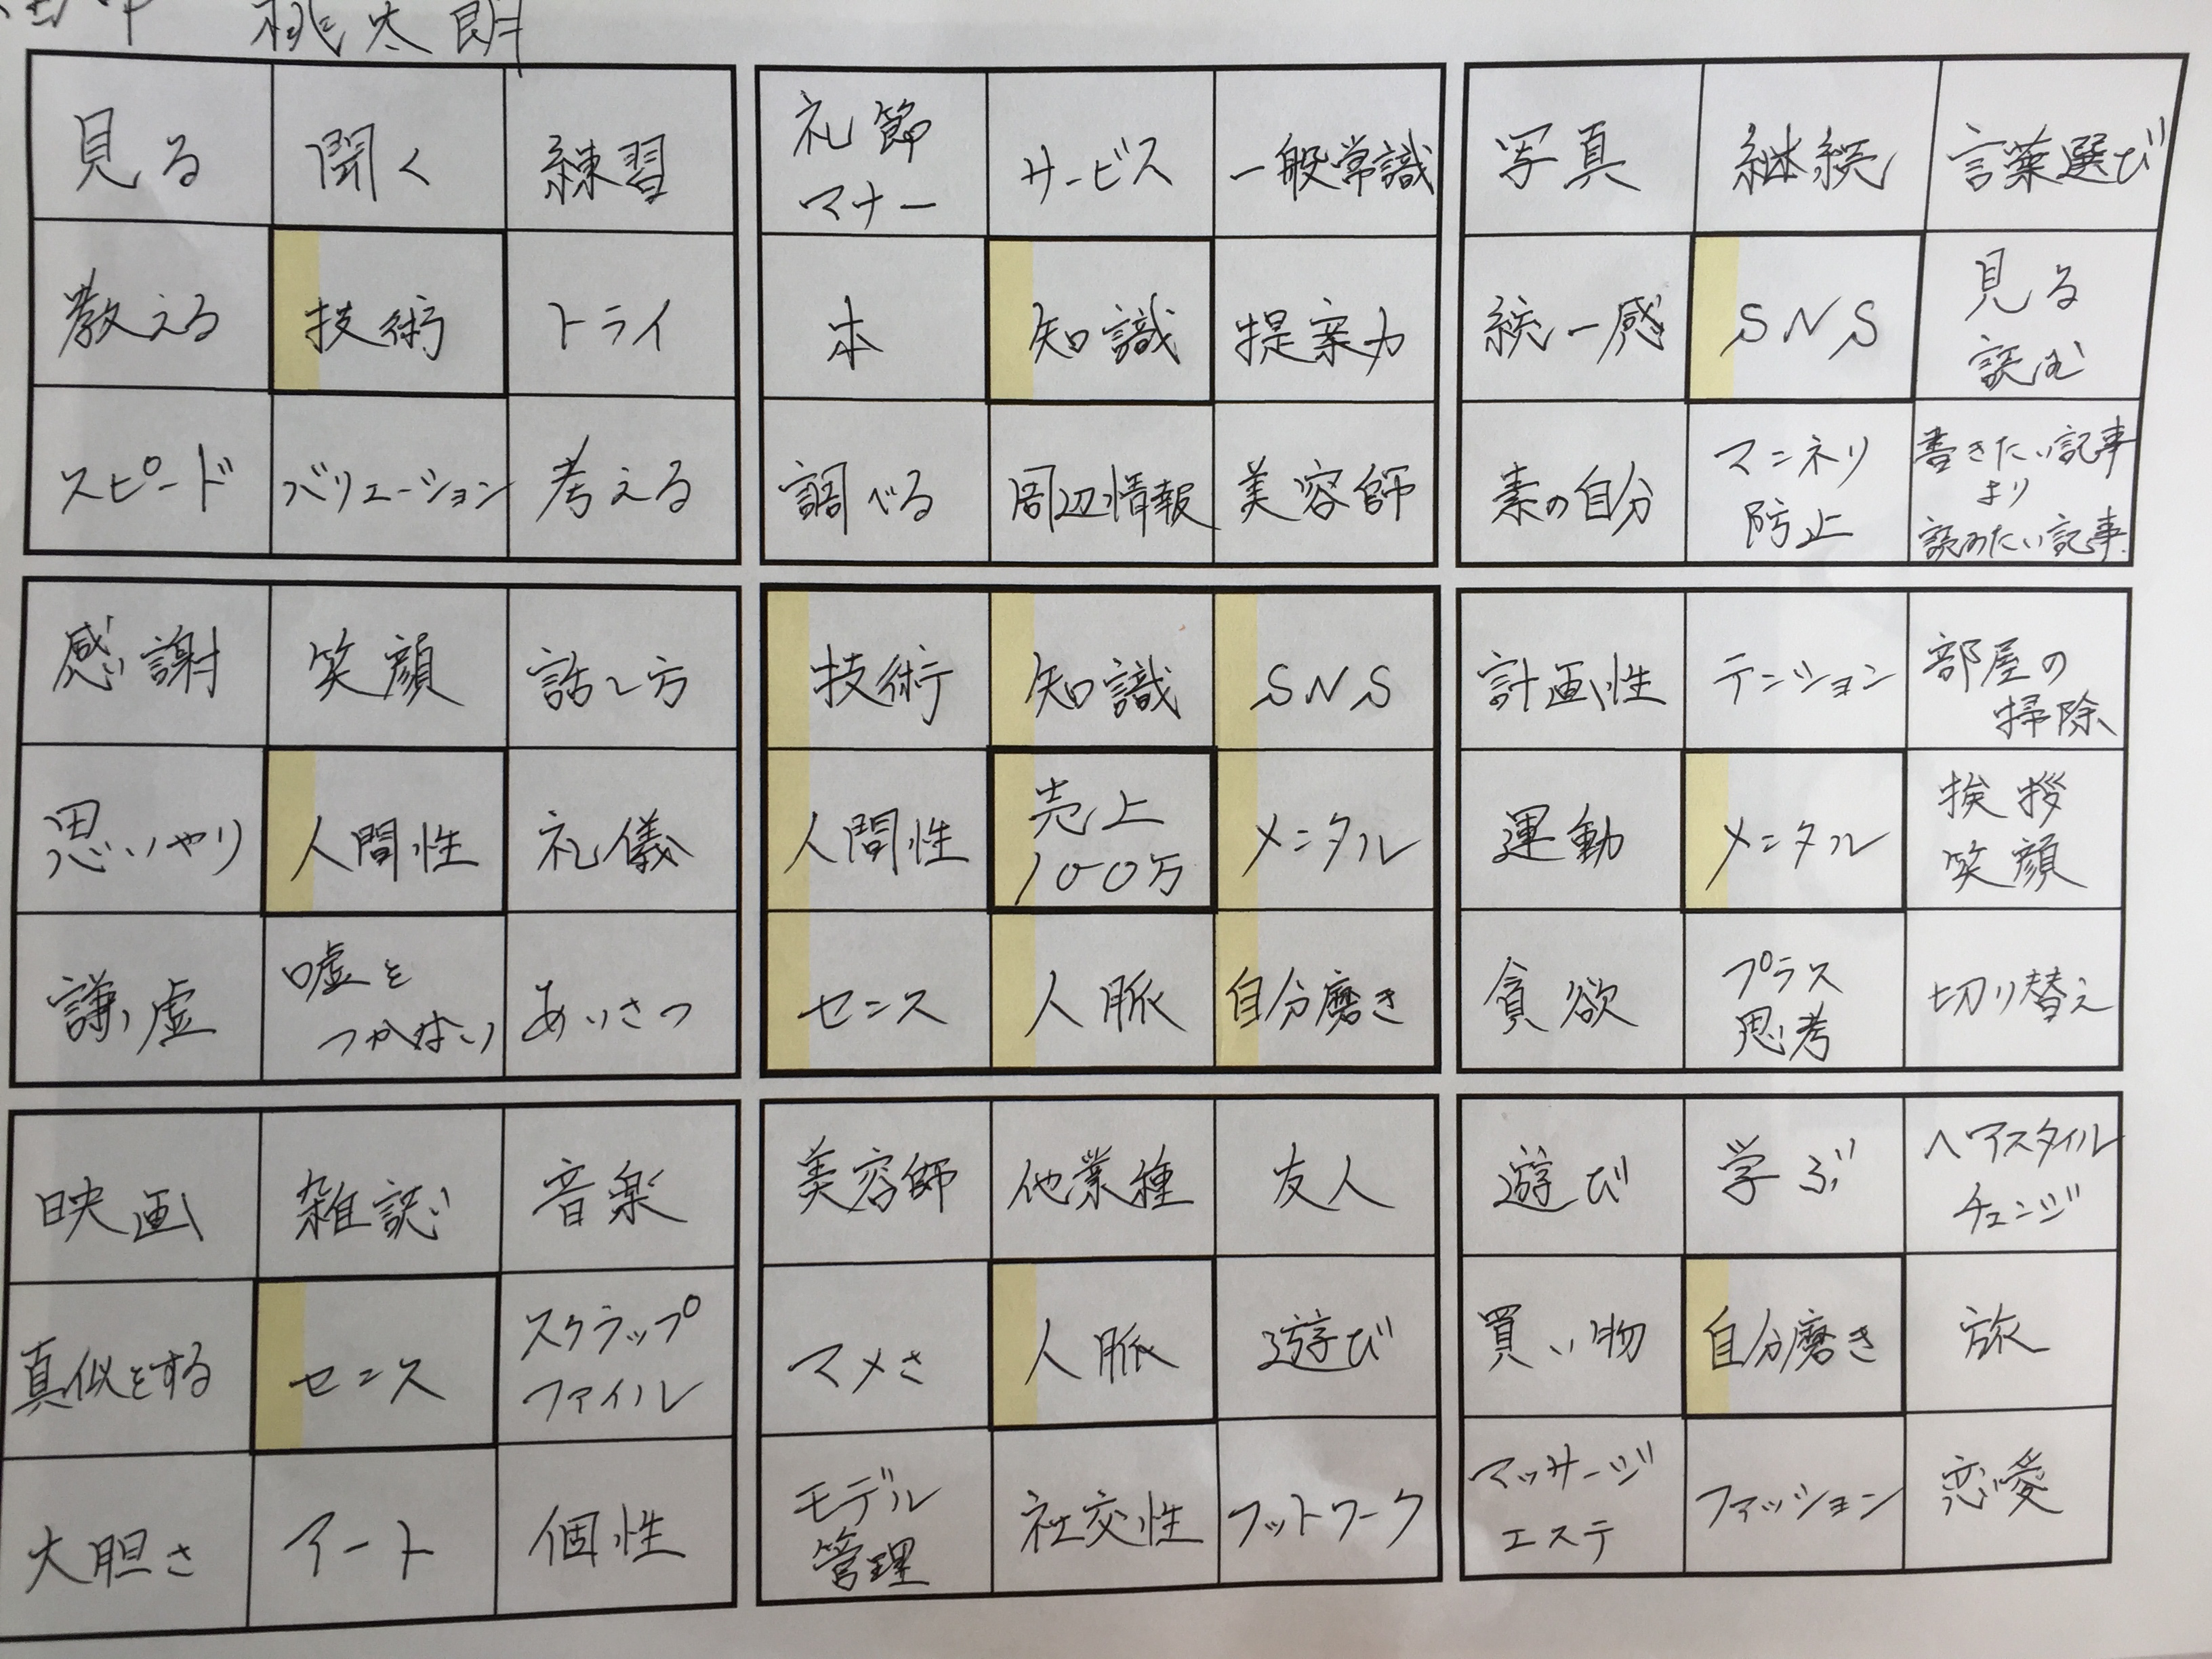 桃太朗
見る
聞く
練習
教える
技術
トライ
スピード
バリエーション
考える
礼節
マナー
サービス
一般常識
本
知識
提案力
調べる
周辺情報
美容師
写真
継続
言葉選び
統一感
SNS
見る
読む
素の自分
マンネリ
防止
書きたい記事
より
読みたい記事
感謝
笑顔
話し方
思いやり
人間性
礼儀
謙虚
嘘を
つかない
あいさつ
技術
知識
SNS
人間性
売上
100万
メンタル
センス
人脈
自分磨き
計画性
テンション
部屋の
掃除
運動
メンタル
挨拶
笑顔
貪欲
プラス
思考
切り替え
映画
雑誌
音楽
真似をする
センス
スクラップ
ファイル
大胆さ
アート
個性
美容師
他業種
友人
マメさ
人脈
遊び
モデル
管理
社交性
フットワーク
遊び
学ぶ
ヘアスタイル
チェンジ
買い物
自分磨き
旅
マッサージ
エステ
ファッション
恋愛